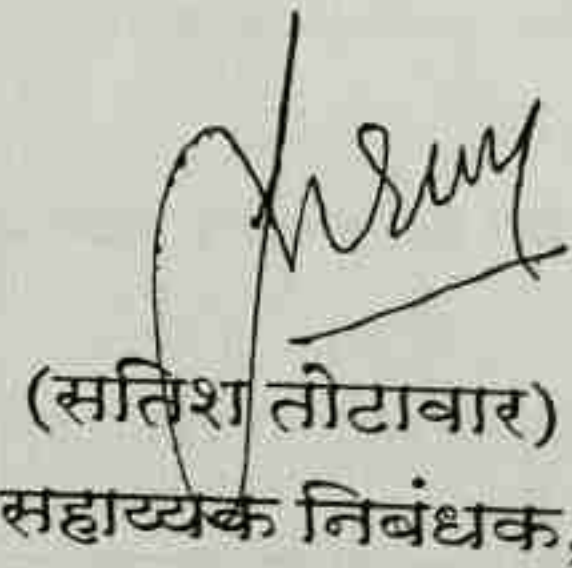 (सतिश तोटावार)
सहाय्यक निबंधक,